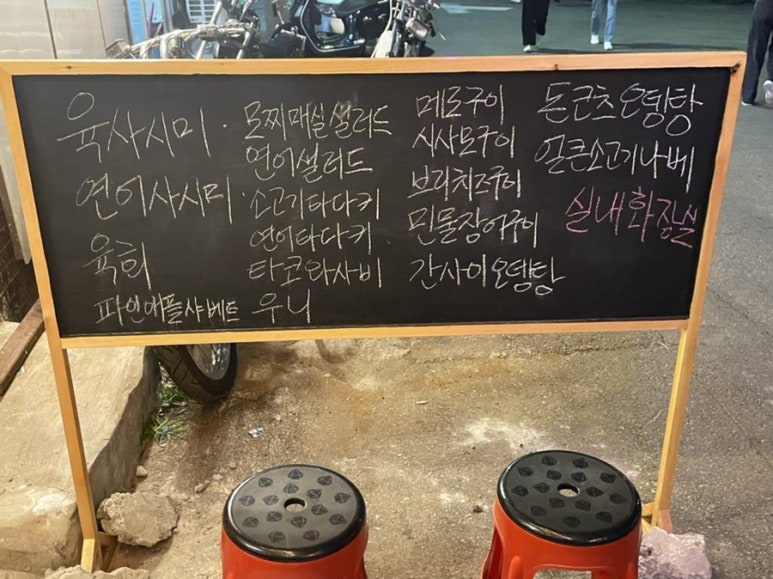 육사시미
연어사시미
육회
파인애플샤베트
모찌매실샐러드
연어샐러드
소고기타다키
연어타다키
타코와사비
우니
메로구이
시사모구이
브리치즈구이
민물장어구이
간사이오뎅탕
돈코츠오뎅탕
얼큰소고기나베
실내화장실